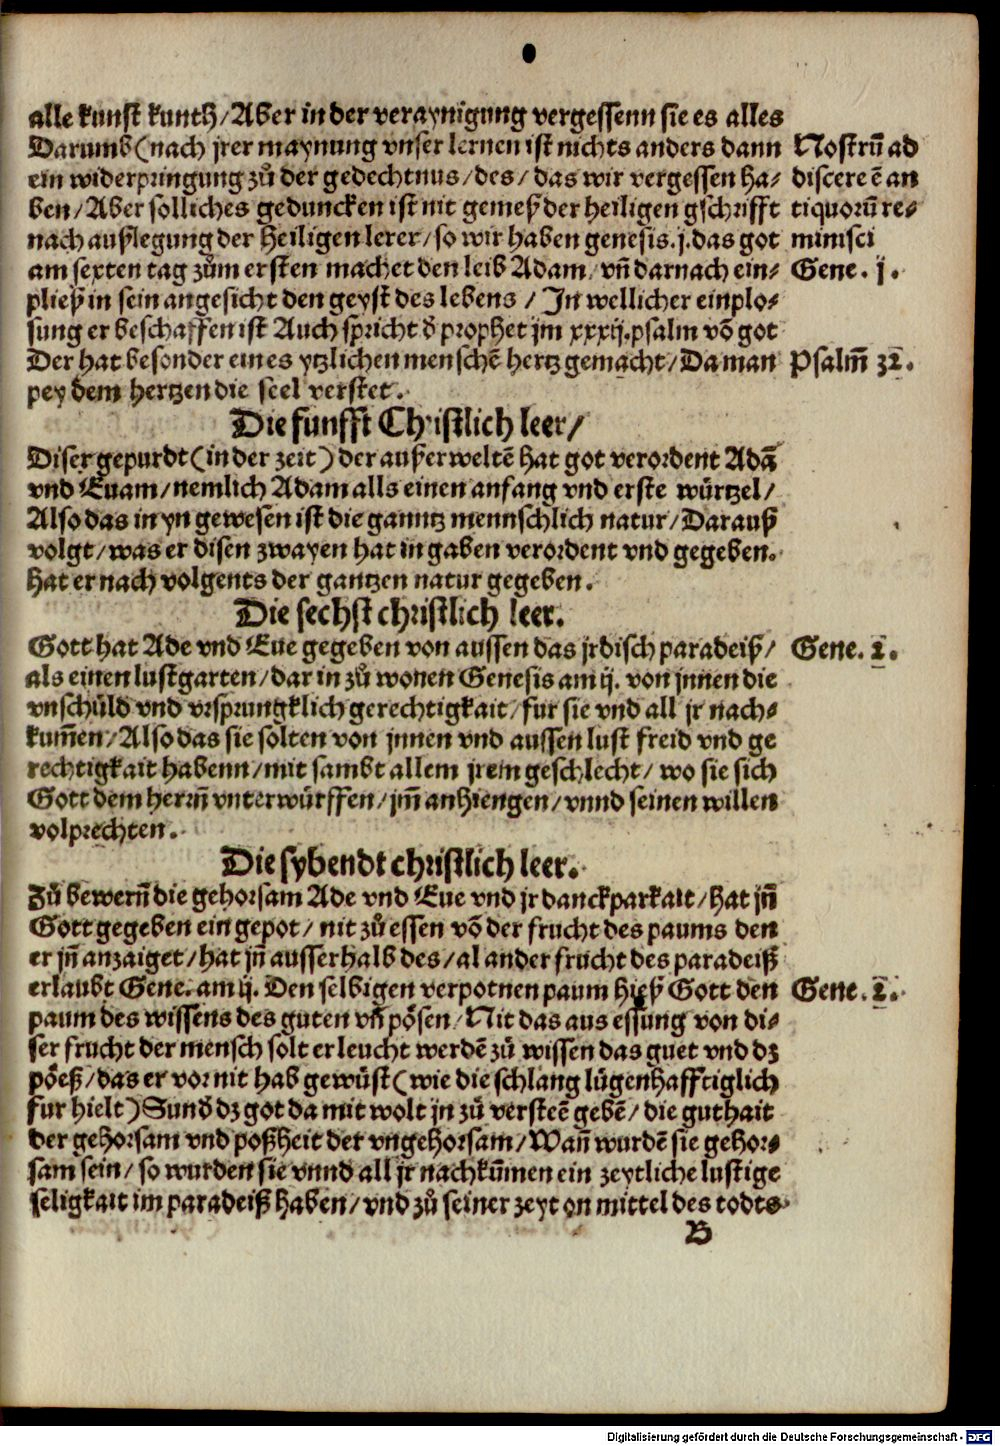 alle kunst kunth/Aber in der veraynigung vergessenn sie es alles
Darumb(nach jrer maynung vnser lernen ist nichts anders dann
ein widerpringung zů der gedechtnus/des/das wir vergessen ha-
ben/Aber solliches geduncken ist nit gemeß der heiligen gschrifft
nach außlegung der Heiligen lerer/so wir haben genesis.j.das got
am sexten tag zům ersten machet den leib Adam/vñ darnach ein-
pließ in sein angesicht den geyst des lebens/In wellicher einplo-
sung er beschaffen ist Auch spricht d̕ prophet jm xxxij.psalm võ got
Der hat besonder eines ytzlichen menschẽ hertz gemacht/Da man
pey dem hertzen die seel verstet.
Nostrũ ad
discere ẽ an
tiquorũ re-
minisci
Gene. j.
Psalm̃ 32.
Die funfft Christlich leer/
Diser gepurdt(in der zeit)der außerweltẽ hat got verordent Adã
vnd Euam/nemlich Adam alls einen anfang vnd erste würtzel/
Also das in yn gewesen ist die ganntz mennschlich natur/Darauß
volgt/was er disen zwayen hat in gaben verordent vnd gegeben.
Hat er nach volgents der gantzen natur gegeben.
Die sechst christlich leer.
Gott hat Ade vnd Eue gegeben von aussen das jrdisch paradeiß/
als einen lustgarten/dar in zů wonen Genesis am ij. von jnnen die
vnschüld vnd vrsprungklich gerechtigkait/fur sie vnd all jr nach-
kum̃en/Also das sie solten von jnnen vnd aussen lust freid vnd ge
rechtigkait habenn/mit sambt allem jrem geschlecht/wo sie sich
Gott dem herrn̄ vnterwürffen/jm̃ anhiengen/vnnd seinen willen
volprechten.
Gene. 2.
Die sybendt christlich leer.
Zů bewern̄ die gehorsam Ade vnd Eue vnd jr danckparkait/hat jn̄
Gott gegeben ein gepot/nit zů essen võ der frucht des paums den
er jn̄ anzaiget/hat jn̄ ausserhalb des/al ander frucht des paradeiß
erlaubt Gene. am ij. Den selbigen verpotnen paum hieß Gott den
paum des wissens des guten vñ pösen/Nit das aus essung von di-
ser frucht der mensch solt erleucht werdẽ zů wissen das guet vnd dz
pöeß/das er vor nit hab gewüst(wie die schlang lügenhafftiglich
fur hielt)Sund̕ dz got da mit wolt jn zů versteẽ gebẽ/die guthait
der gehorsam vnd poßheit der vngehorsam/Wañ wurdẽ sie gehor-
sam sein/so wurden sie vnnd all jr nachkũmen ein zeytliche lustige
seligkait im paradeiß haben/vnd zů seiner zeyt on mittel des todts
Gene. 2.
B
Digitalisierung gefördert durch die Deutsche Forschungsgemeinschaft - DFG